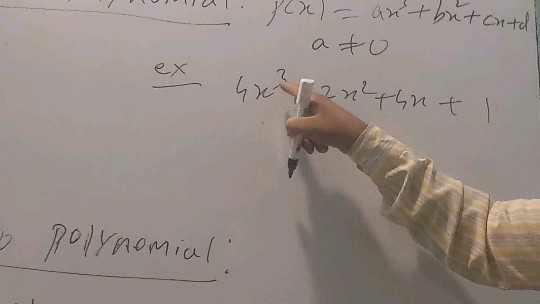 p(x) = ax³+bx²+cx+d
a ≠ 0
ex
4x³ 2x²+4x + 1
Polynomial: